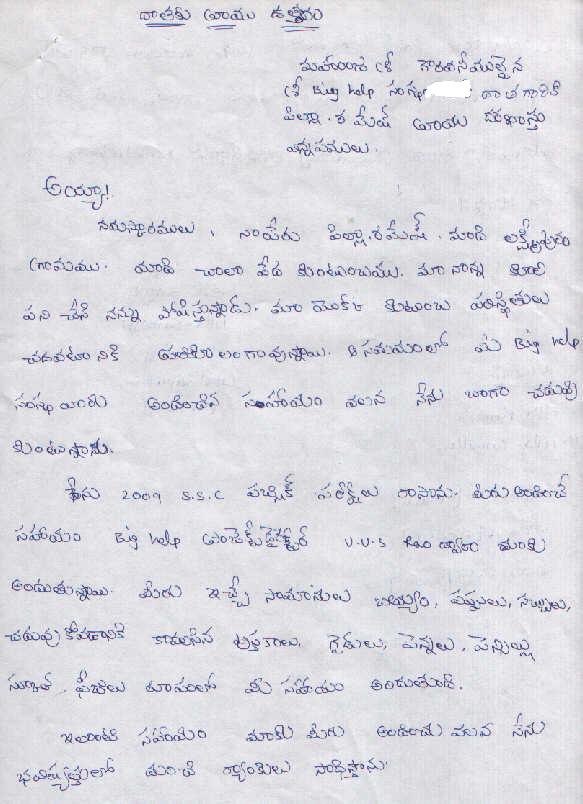 దాతకు వ్రాయు ఉత్తరం
మహారాజ శ్రీ గౌరవనీయులైన
శ్రీ Big help సంస్థ దాత గారికి
పిల్లా. రమేష్ వ్రాయు దరఖాస్తు
విన్నపములు.
అయ్యా!
నమస్కారములు, నాపేరు పిల్లా రమేష్. మాది లక్ష్మీపురం
గ్రామము. మాది చాలా పేద కుటుంబము. మా నాన్న కూలి
పని చేసి నన్ను పోషిస్తున్నాడు. మా యొక్క కుటుంబ పరిస్థితులు
చదవటానికి ప్రతికూలంగావున్నాయి. ఆ సమయంలో మీ Big help
సంస్థ వారు అందించిన సహాయం వలన నేను బాగా చదువు
కుంటున్నాను.
నేను 2009 S.S.C పబ్లిక్ పరీక్షలు రాసాను. మీరు అందించే
సహాయం Big help ప్రాజెక్ట్ డైరెక్టర్ U.V.S ద్వారా మాకు
అందుతున్నాయి. మీరు ఇచ్చే సామానులు బియ్యం, పప్పులు, సబ్బులు,
చదువుకోవడానికి కావలసిన పుస్తకాలు, గైడులు, పెన్నులు, పెన్సిల్లు
స్కూల్ ఫీజులు రూపంలో మీ సహాయం అందుతుంది.
ఇలాంటి సహాయం మాకు మీరు అందించు వలన నేను
భవిష్యత్తులో మంచి ర్యాంకులు సాధిస్తాను.